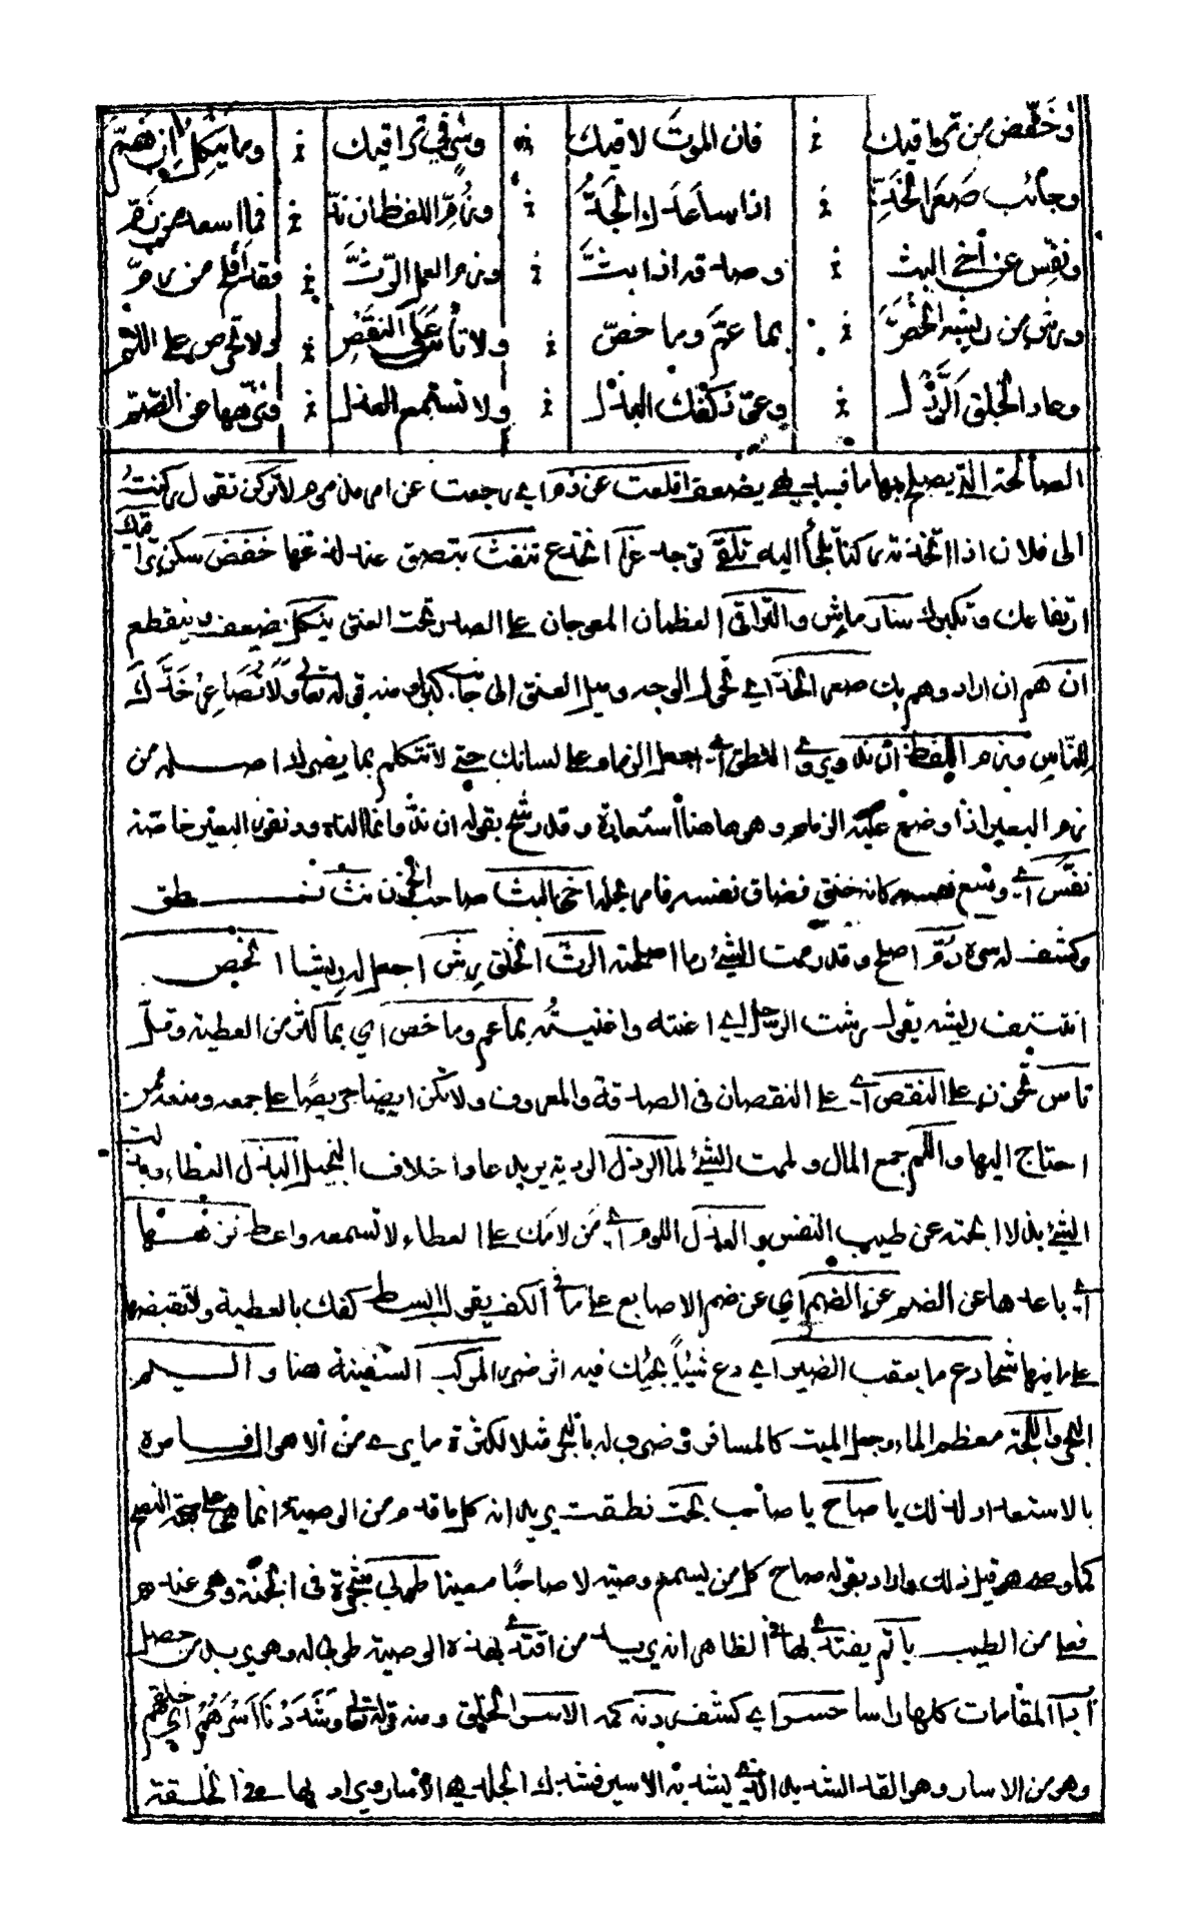 وخفض من تراقيك فان الموت لاقيك وساري في تراقيك وما ينكل ان هم
وجانب صعر الخد اذا ساعدك الجد وزم اللفظ ان ند فما اسعد من زم
ونفس عن أخي البث وصدقه اذا بث ورم العمل الرث فقد أفلح من رم
ورش من ريشه انحص بما عم وما خص ولا تأس على النقص ولا تحرص على اللم
وعاد الخلق الرذل وعود كفك البذل ولا تستمع العذل ونزهها عن الضم
الصالحة التي يصلح بها ما يضعف اقلعت عن ذم اي رجعت عن امر مذموم لا تركن تقول ركنت
الى فلان اذا اتخذته ركنا تلجأ اليه تلقى توجد غر انخدع تنفث تبصق عند لدغها خفض سكن تراقيك
ارتفاعك وتكبرك سار ماش والتراقي العظمان المعوجان على الصدر تحت العنق ينكل يضعف وينقطع
ان هم ان اراد وهم بك صعر الخد اي تحول الوجه وميل العنق الى جانب كبرا ومنه قوله تعالى ولا تصاعر خدك
للناس وزم اللفظ ان ند والنطق اي اجعل الزمام على لسانك حتى لا تتكلم بما يضرك اصله من
زم البعير اذا وضع عليه الزمام وهو هاهنا استعارة وقد رشح بقوله ان ند وانما الند ونفور البعير خاصة
نفس اي وسع كانه خنق فضاق نفسه فامر اخي البث صاحب الحزن نث نطق
وكشف له سره رم اصلح وقد رممت الشيء رما اصلحته الرث الخلق رش اجعل له ريشا انحص
انتتف ريشه يقول رشت الرجل اي اعنته واغنيته بما عم وما خص اي بما كثر من العطية وقل
تأس تحزن على النقص اي على النقصان في الصدقة والمعروف ولا تكن ايضا حريصا على جمعه ومنعه ممن
احتاج اليها واللم جمع المال ولممت الشيء لما الرذل الردية يريد عاد اخلاف البخيل البذل العطاء وبذلت
الشيء بذلا ابحته عن طيب النفس والعذل اللوم اي من لامك على العطاء لا تسمعه واعط نزهها
اي باعدها عن الضم عن الضم اي عن ضم الاصابع على ما في الكف يقول ابسط كفك بالعطية ولا تقبضها
على ما فيها شحا دع ما يعقب الضير اي دع شيئا يجيئك فيه اثر ضر المركب السفينة هنا واليم
اللج واللجة معظم الماء وجعل الميت كالمسافر وضرب له باللج مثلا لكثرة ما يرى من الاهوال فامره
بالاستعداد لذلك يا صاح يا صاحب بحت نطقت يريد انه كل ما قدم من الوصية انما هي على جهة النصح
كما قيل ذلك واراد بقوله صاح كل من يسمع وصيته لا صاحبا معينا طوبى شجرة في الجنة وهي عندهم
فعلى من الطيب يأتم يقتدي بها الظاهر انه يريد من اقتدى بهذه الوصية طوبى له وهو يريد من حصل
المقامات كلها راسا حسر اي كشف ردنه كمه الاسر الخلق ومنه قوله تعالى وشددنا اسرهم اي خلقهم
وهو من الاسار وهو القد الشديد الذي يشد به الاسير فشدك الجلد هي الاسار ويراد بها هذا الخلقة